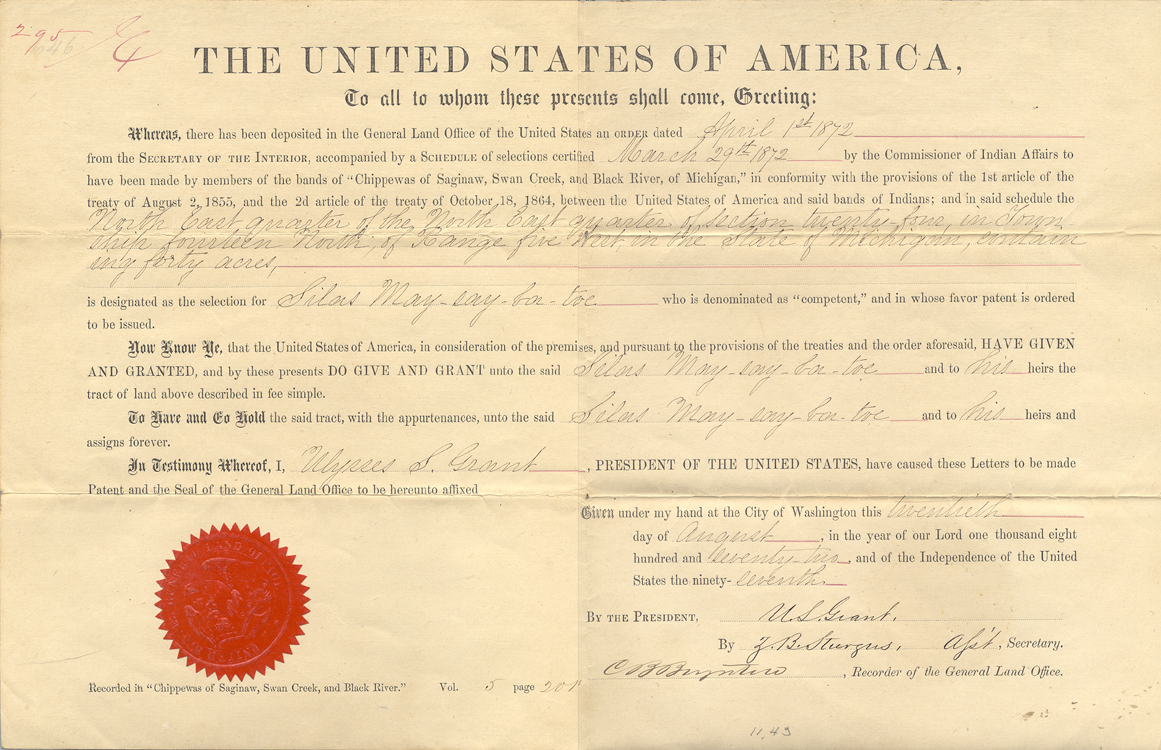 295
THE UNITED STATES OF AMERICA,
To all to whom these presents shall come, Greeting:
Whereas, there has been deposited in the General Land Office of the United States an ORDER dated April 1st 1872
from the SECRETARY OF THE INTERIOR, accompanied by a SCHEDULE of selections certified March 29th 1872 by the Commissioner of Indian Affairs to
have been made by members of the bands of “Chippewas of Saginaw, Swan Creek, and Black River, of Michigan,” in conformity with the provisions of the 1st article of the
treaty of August 2, 1855, and the 2d article of the treaty of October 18, 1864, between the United States of America and said bands of Indians; and in said schedule the
North East quarter of the North East quarter of section twenty four, in Town
ship fourteen North, of Range five West in the State of Michigan, contain
ing forty acres,
is designated as the selection for Silas May-say-ba-toe who is denominated as “competent,” and in whose favor patent is ordered
to be issued.
Now Know Ye, that the United States of America, in consideration of the premises, and pursuant to the provisions of the treaties and the order aforesaid, HAVE GIVEN
AND GRANTED, and by these presents DO GIVE AND GRANT unto the said Silas May-say-ba-toe and to his heirs the
tract of land above described in fee simple.
To Have and To Hold the said tract, with the appurtenances, unto the said Silas May-say-ba-toe and to his heirs and
assigns forever.
In Testimony Whereof, I, Ulysses S. Grant, PRESIDENT OF THE UNITED STATES, have caused these Letters to be made
Patent and the Seal of the General Land Office to be hereunto affixed
Given under my hand at the City of Washington this twentieth
day of August, in the year of our Lord one thousand eight
hundred and seventy-two, and of the Independence of the United
States the ninety-seventh.
BY THE PRESIDENT, U.S. Grant.
By Z.B. Sturgus, Ass't, Secretary.
C B Boynton, Recorder of the General Land Office.
Recorded in “Chippewas of Saginaw, Swan Creek, and Black River.” Vol. 5 page 201
11,43